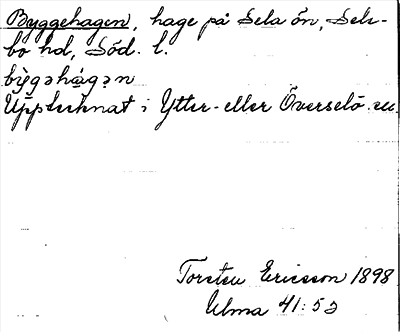 Byggehagen, hage på Sela ön, Sele-
bo hd, Söd. l.
by̅gəhágən
Upptecknat i Ytter- eller Överselö
Torsten Ericsson 1898
Ulma 41:52